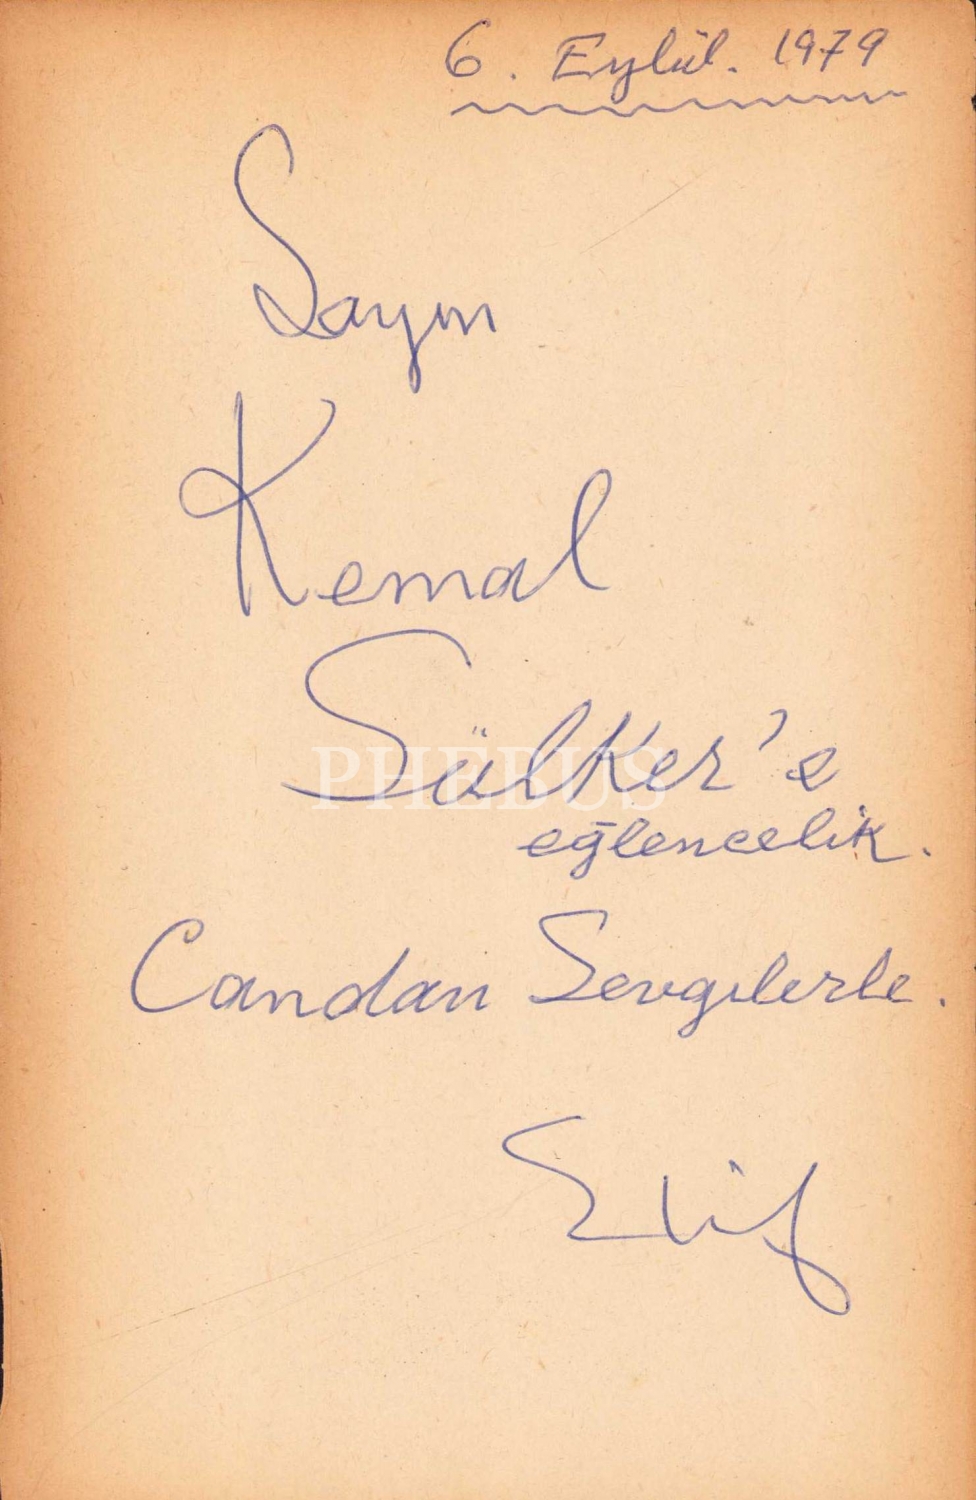 6. Eylül. 1979
Sayın
Kemal
Sülker's
eğlencelik.
Candan Sevgilerle.
Elif
PHEBUS